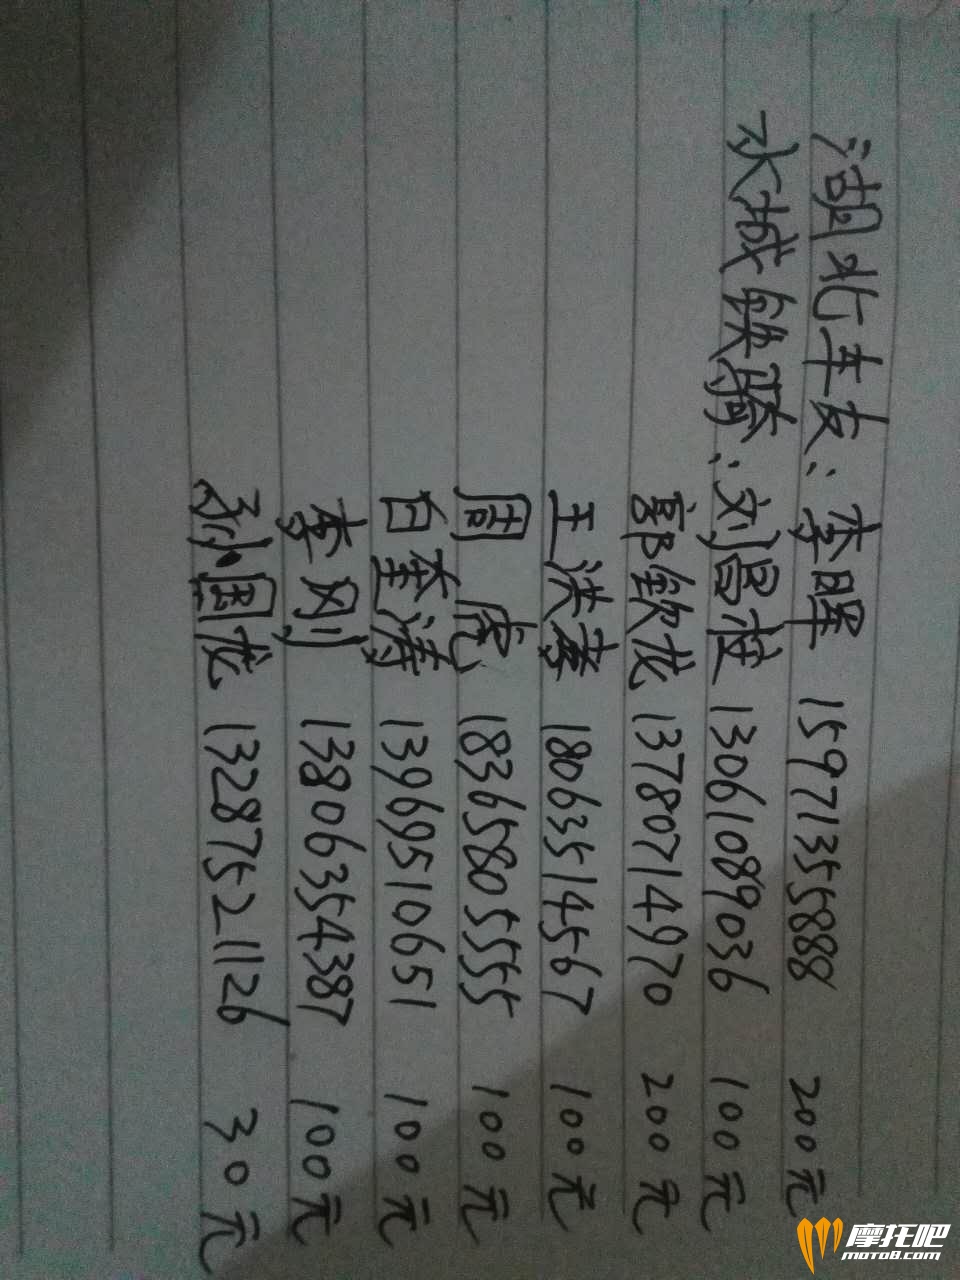 湖北车友：李晖 15971355888 200元
水城铁骑：刘昌建 13061089036 100元
郭钦龙 13780714970 200元
王洪孝 18063514567 100元
周虎 18365805555 100元
白奎涛 13969510651 100元
李刚 13806354387 100元
孙国龙 13287521126 30元
摩托吧
moto8.com